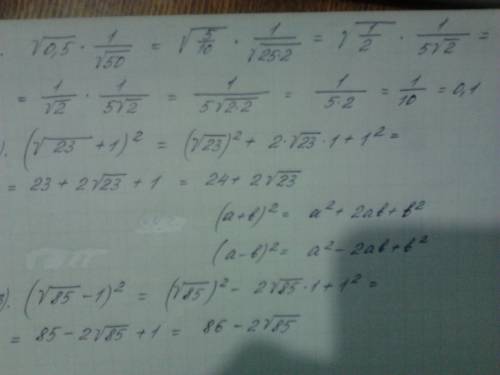 √0,5 · 1/√50 = √(5/10) · 1/√(25·2) = √(1/2) · 1/(5√2) =
= 1/√2 · 1/(5√2) = 1/(5√(2·2)) = 1/(5·2) = 1/10 = 0,1
). (√23 + 1)² = (√23)² + 2·√23·1 + 1² =
= 23 + 2√23 + 1 = 24 + 2√23
(a+b)² = a² + 2ab + b²
(a−b)² = a² − 2ab + b²
). (√85 − 1)² = (√85)² − 2√85·1 + 1² =
= 85 − 2√85 + 1 = 86 − 2√85